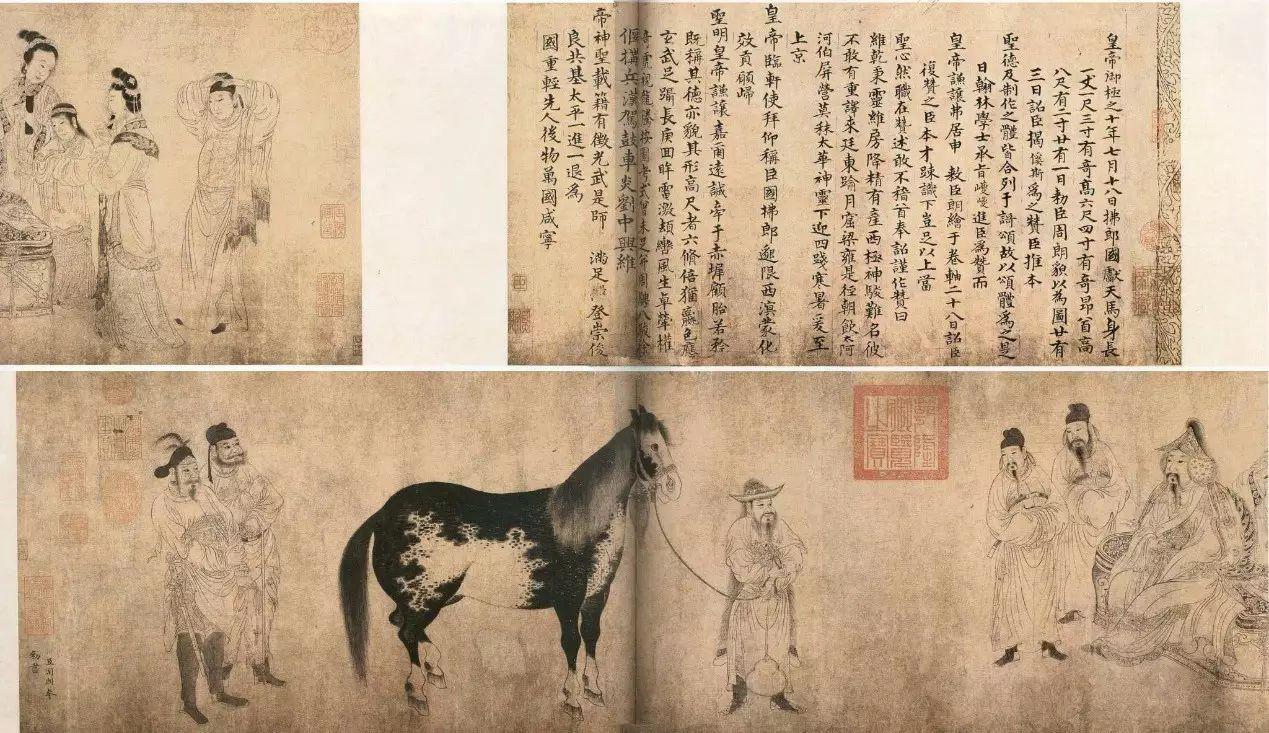 皇帝御極之十年七月十八日拂郎國獻天馬身長
一丈一尺三寸有奇高六尺四寸有奇昂首高
八尺有二寸廿有一日勅臣周朗貌以為圖廿有
三日詔臣揭傒斯為之贊臣推本
聖德及制作之體皆合列于詩頌故以頌體為之是
日翰林學士承旨巙巙進臣為贊而
皇帝謙讓弗居申 敕臣朗繪于卷軸二十八日詔臣
復贊之臣本才踈識下豈足以上當
聖心然職在贊述敢不稽首奉詔謹作贊曰
維乾秉靈維房降精有產西極神駿難名彼
不敢有重譯來廷東踰月窟梁雍是徑朝飲大阿
河伯屏營莫秣太華神靈下迎四踐寒暑爰至
上京
皇帝臨軒使拜仰稱臣國拂郎邈限西溟蒙化
效貢願歸
聖明皇帝謙讓嘉爾遠誠牽于赤墀顧眙若矜
既稱其德亦貌其形高尺者六脩倍猶羸色應
玄武足躡長庚回眸電激頓轡風生卓犖權
奇虎視龍騰按圖考式曾未足并周騁八駿徐
偃搆兵漢駕鼓車炎劉中興維
帝神聖載籍有徵光武是師 登崇俊
良共基太平一進一退為
國重輕先人後物萬國咸寧
乾隆御覽之寶
臣周朗奉
勅畫